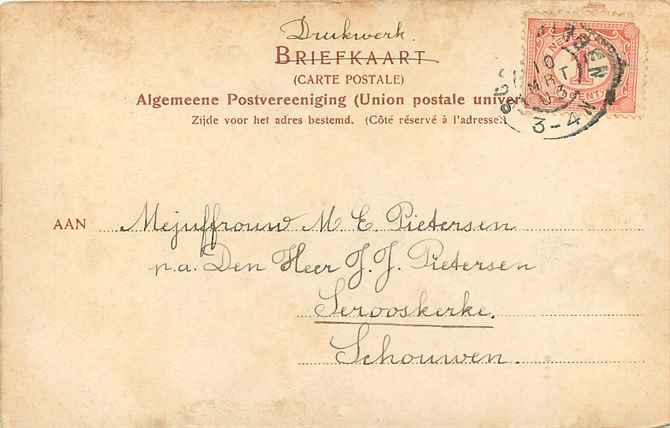 Drukwerk.
BRIEFKAART
(CARTE POSTALE)
Algemeene Postvereeniging (Union postale univer
Zijde voor het adres bestemd. (Côté réservé à l'adresse.)
10
MRT
3-4
AAN Mejuffrouw M. E. Pietersen
p.a. Den Heer J. J. Pietersen
Serooskerke.
Schouwen.